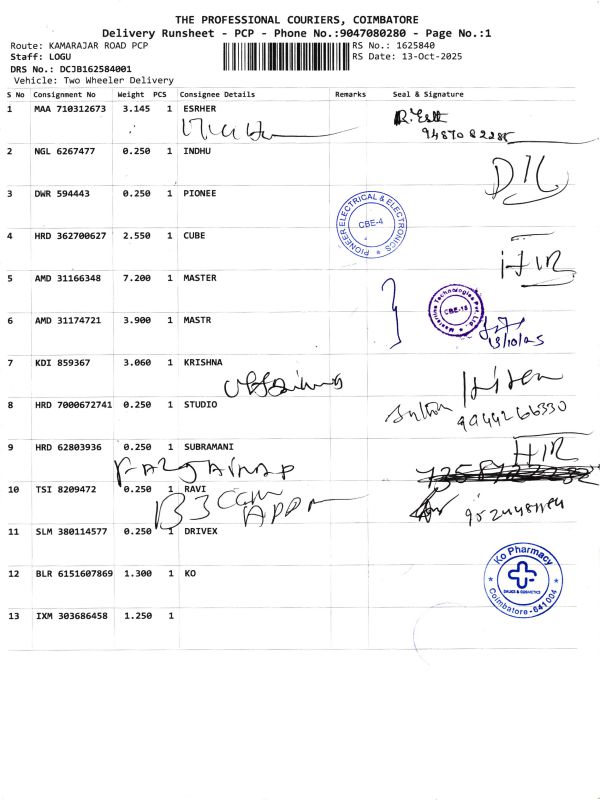 THE PROFESSIONAL COURIERS, COIMBATORE
Delivery Runsheet - PCP - Phone No.:9047080280 - Page No.:1
Route: KAMARAJAR ROAD PCP
RS No.: 1625840
Staff: LOGU
RS Date: 13-Oct-2025
DRS No.: DCJB162584001
Vehicle: Two Wheeler Delivery
S No Consignment No Weight PCS Consignee Details Remarks Seal & Signature
1 MAA 710312673 3.145 1 ESRHER
2 NGL 6267477 0.250 1 INDHU
3 DWR 594443 0.250 1 PIONEE
PIONEER ELECTRICAL & ELECTRONICS
CBE-4
4 HRD 362700627 2.550 1 CUBE
5 AMD 31166348 7.200 1 MASTER
CBE-18
6 AMD 31174721 3.900 1 MASTR
13/10/25
7 KDI 859367 3.060 1 KRISHNA
8 HRD 7000672741 0.250 1 STUDIO
9944266330
9 HRD 62803936 0.250 1 SUBRAMANI
10 TSI 8209472 0.250 1 RAVI
11 SLM 380114577 0.250 1 DRIVEX
12 BLR 6151607869 1.300 1 KO
Ko Pharmacy
DRUGS & COSMETICS
Coimbatore-641004
13 IXM 303686458 1.250 1